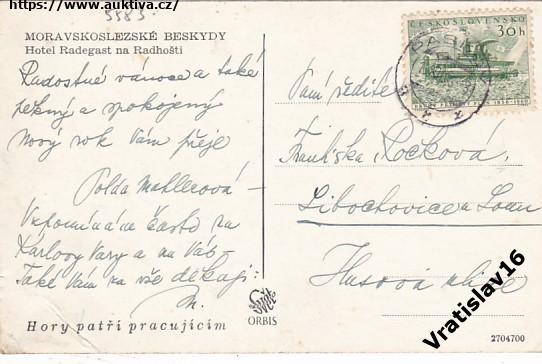 https://www.auktiva.cz/
5583
MORAVSKOSLEZSKÉ BESKYDY
Hotel Radegast na Radhošti
Radostné vánoce a také
pěkný a spokojený
nový rok Vám přeje
Polda
Vzpomínám často na
Karlovy Vary a na Vás
Také Vám za vše děkuji
M.
Hory patří pracujícím
ORBIS
ČESKOSLOVENSKO
36h
Paní ředitel
Františka Rocková,
Libochovice n
Husová ulice
Vratislav16
2704700